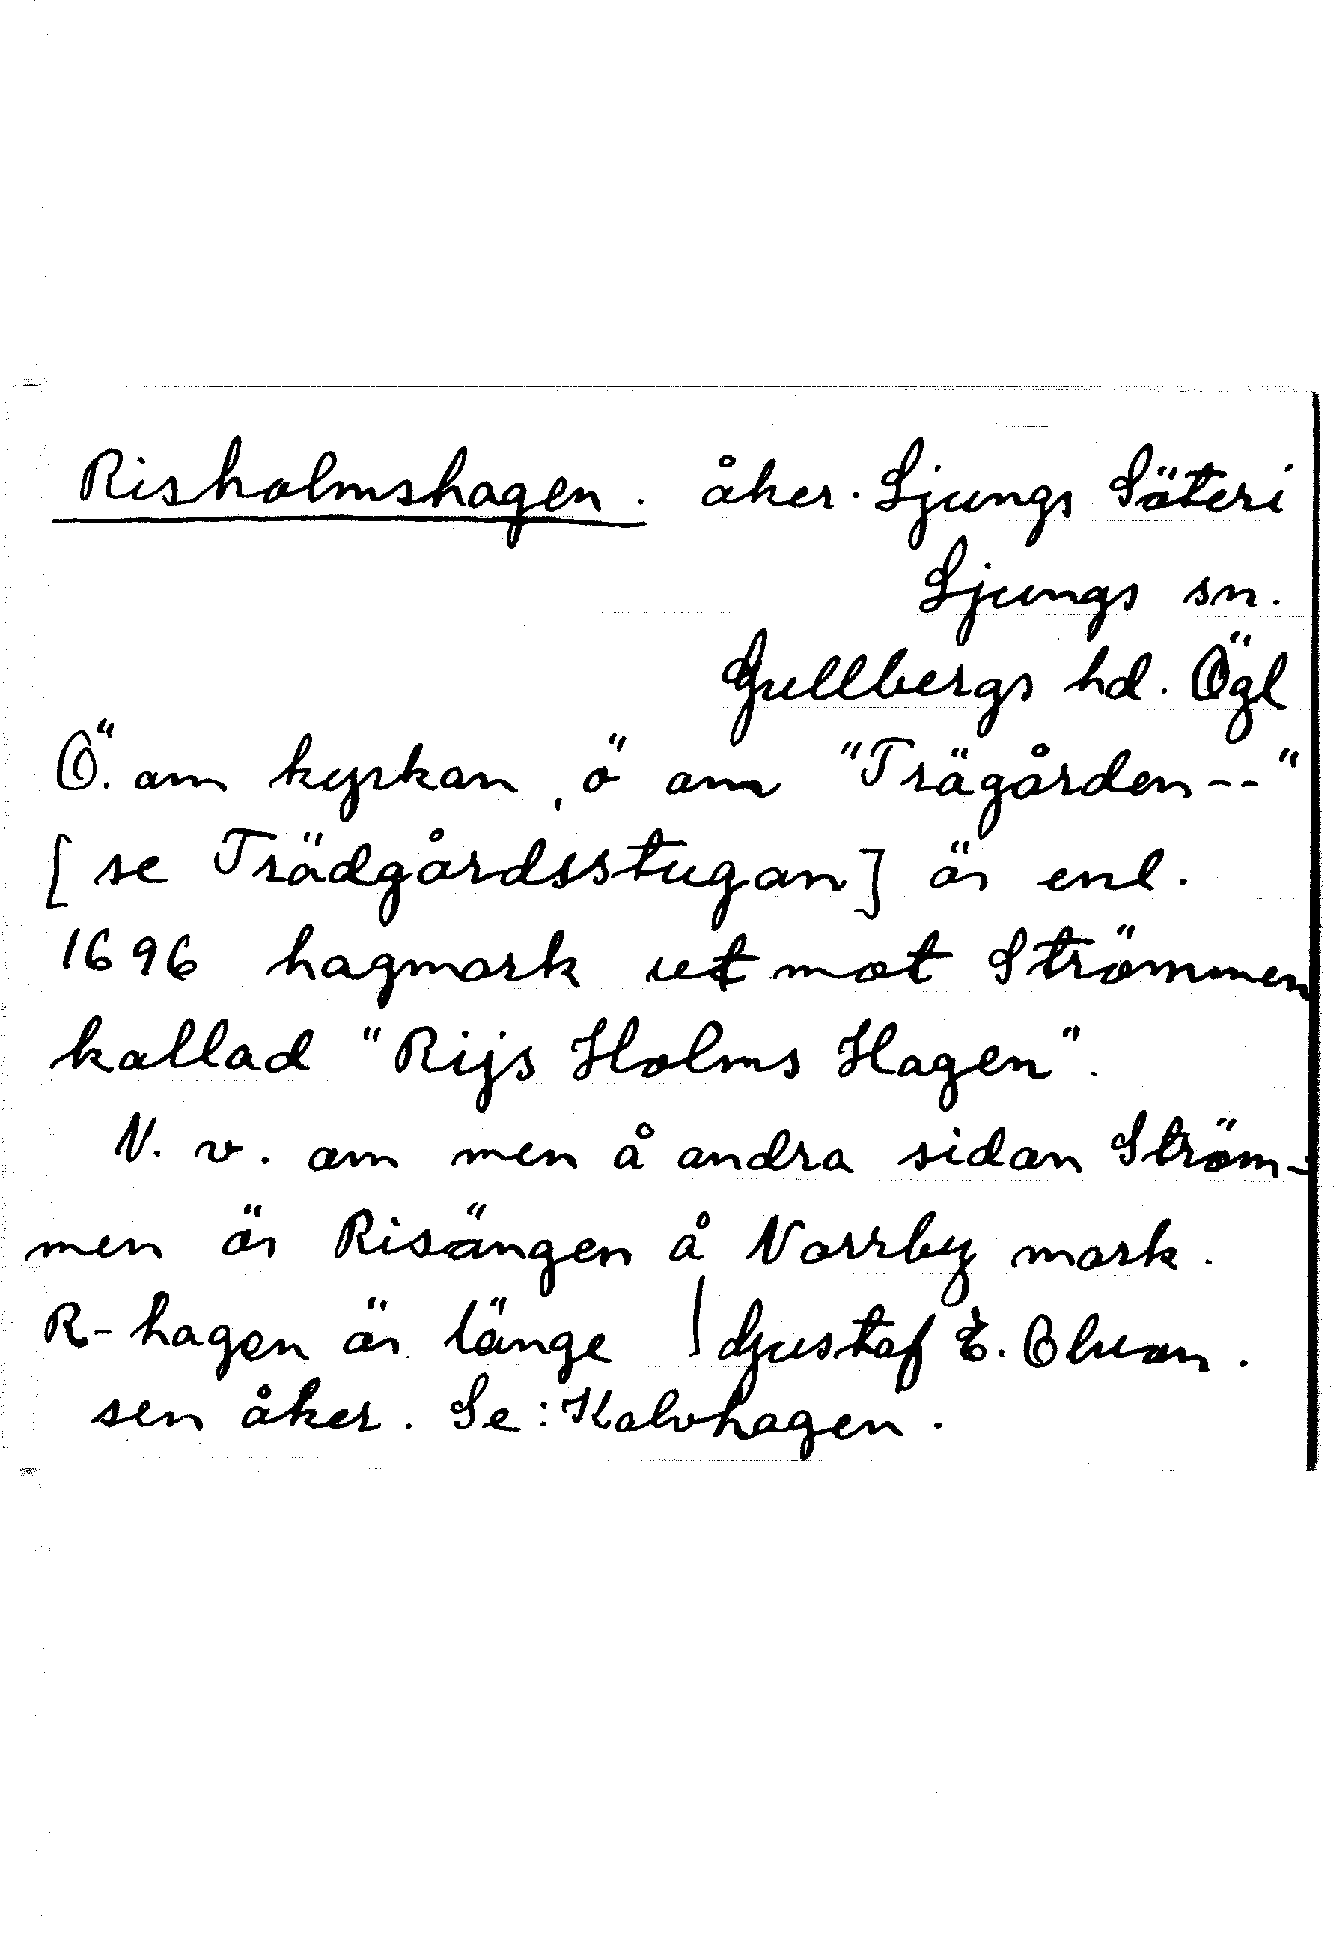 Risholmshagen. åker. Ljungs Säteri
Ljungs sn.
Gullbergs hd. Ögl
Ö. om kyrkan, ö om "Trägården--"
[se Trädgårdsstugan] är enl.
1696 hagmark ut mot Strömmen
kallad "Rijs Holms Hagen".
N. v. om men å andra sidan Ström-
men är Risängen å Norrby mark.
R-hagen är länge
sen åker. Se: Kalvhagen.
Gustaf E. Olson.